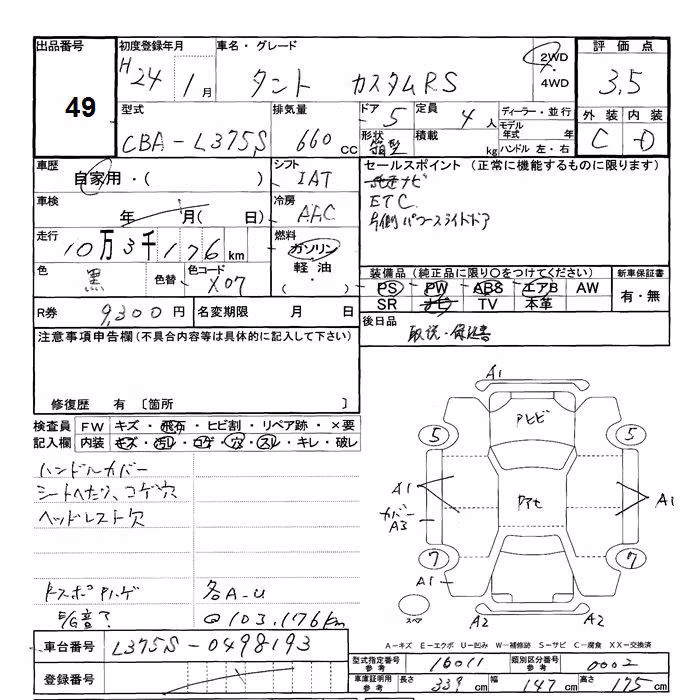 出品番号
49
初度登録年月
H24年1月
車名・グレード
タント カスタムRS
2WD
・
4WD
評価点
3.5
外装 内装
C D
型式
CBA-L375S
排気量
660 cc
ドア 5
形状 箱型
定員 4人
積載 kg
ディーラー・並行
モデル年式 年
ハンドル 左・右
車歴
自家用・( )
シフト
IAT
セールスポイント (正常に機能するものに限ります)
ナビ
ETC
片側パワースライドドア
車検
年 月( 日)
冷房
AAC
走行
10万3千176km
燃料
ガソリン
軽油
・( )
色
黒
色替
色コード
X07
装備品(純正品に限り○をつけてください)
PS PW ABS エアB AW
SR ナビ TV 本革
新車保証書
有・無
R券 9,300円
名変期限 月 日
後日品
取説・保証書
注意事項申告欄(不具合内容等は具体的に記入して下さい)
修復歴 有 〔箇所 〕
検査員 FW キズ・飛石・ヒビ割・リペア跡・×要
記入欄 内装 キズ・汚レ・コゲ・穴・スレ・キレ・破レ
ハンドルカバー
シートへたり、コゲ穴
ヘッドレスト穴
各A-U
@103,176km
車台番号
L375S-0498193
登録番号
A1
Aトビ
5
5
A1
A1
カバー
A3
7
7
A1
スペア
A2
A2
A-キズ E-エクボ U-凹み W-補修跡 S-サビ C-腐食 XX-交換済
型式指定番号 参考
16011
類別区分番号 参考
0002
車庫証明用 参考
長さ 339cm
幅 147cm
高さ 175cm